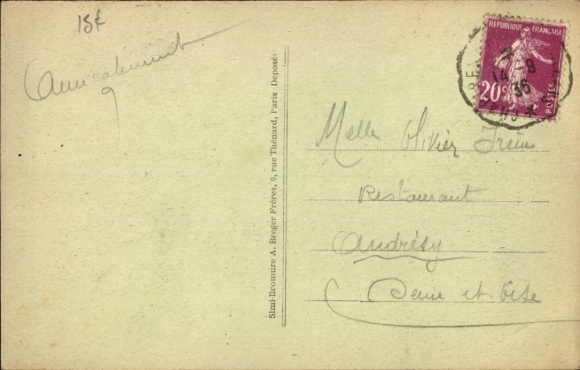 15€
Amicalement
Simi-Bromure A. Breger Frères, 9, rue Thénard, Paris Déposé
REPUBLIQUE FRANÇAISE
20c
POSTES
14-9
36
Melle Olivier Irène
Restaurant
Andrésy
Seine et Oise